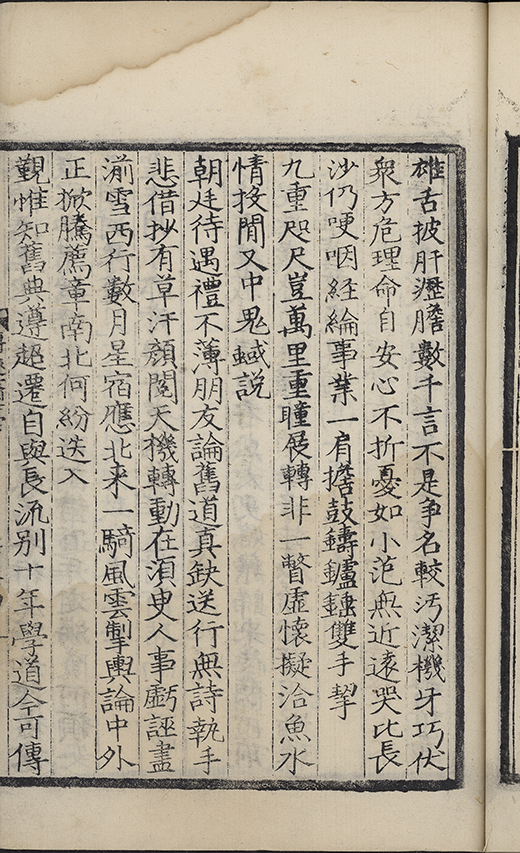 雄舌披肝瀝膽數千言不是爭名較汚潔機牙巧伏
衆方危理命自安心不折憂如小范無近遠哭比長
沙仍哽咽經綸事業一肩擔鼓鑄鑪錘雙手挈
九重咫尺豈萬里重瞳展轉非一瞥虛懷擬洽魚水
情投閒又中鬼蜮說
朝廷待遇禮不薄朋友論舊道真缺送行無詩執手
悲借抄有草汗顏閱天機轉動在湏臾人事虧誣盡
湔雪西行數月星宿應北来一騎風雲掣輿論中外
正掀騰薦章南北何紛迭入
覲惟知舊典遵超遷自與長流别十年學道今可傳